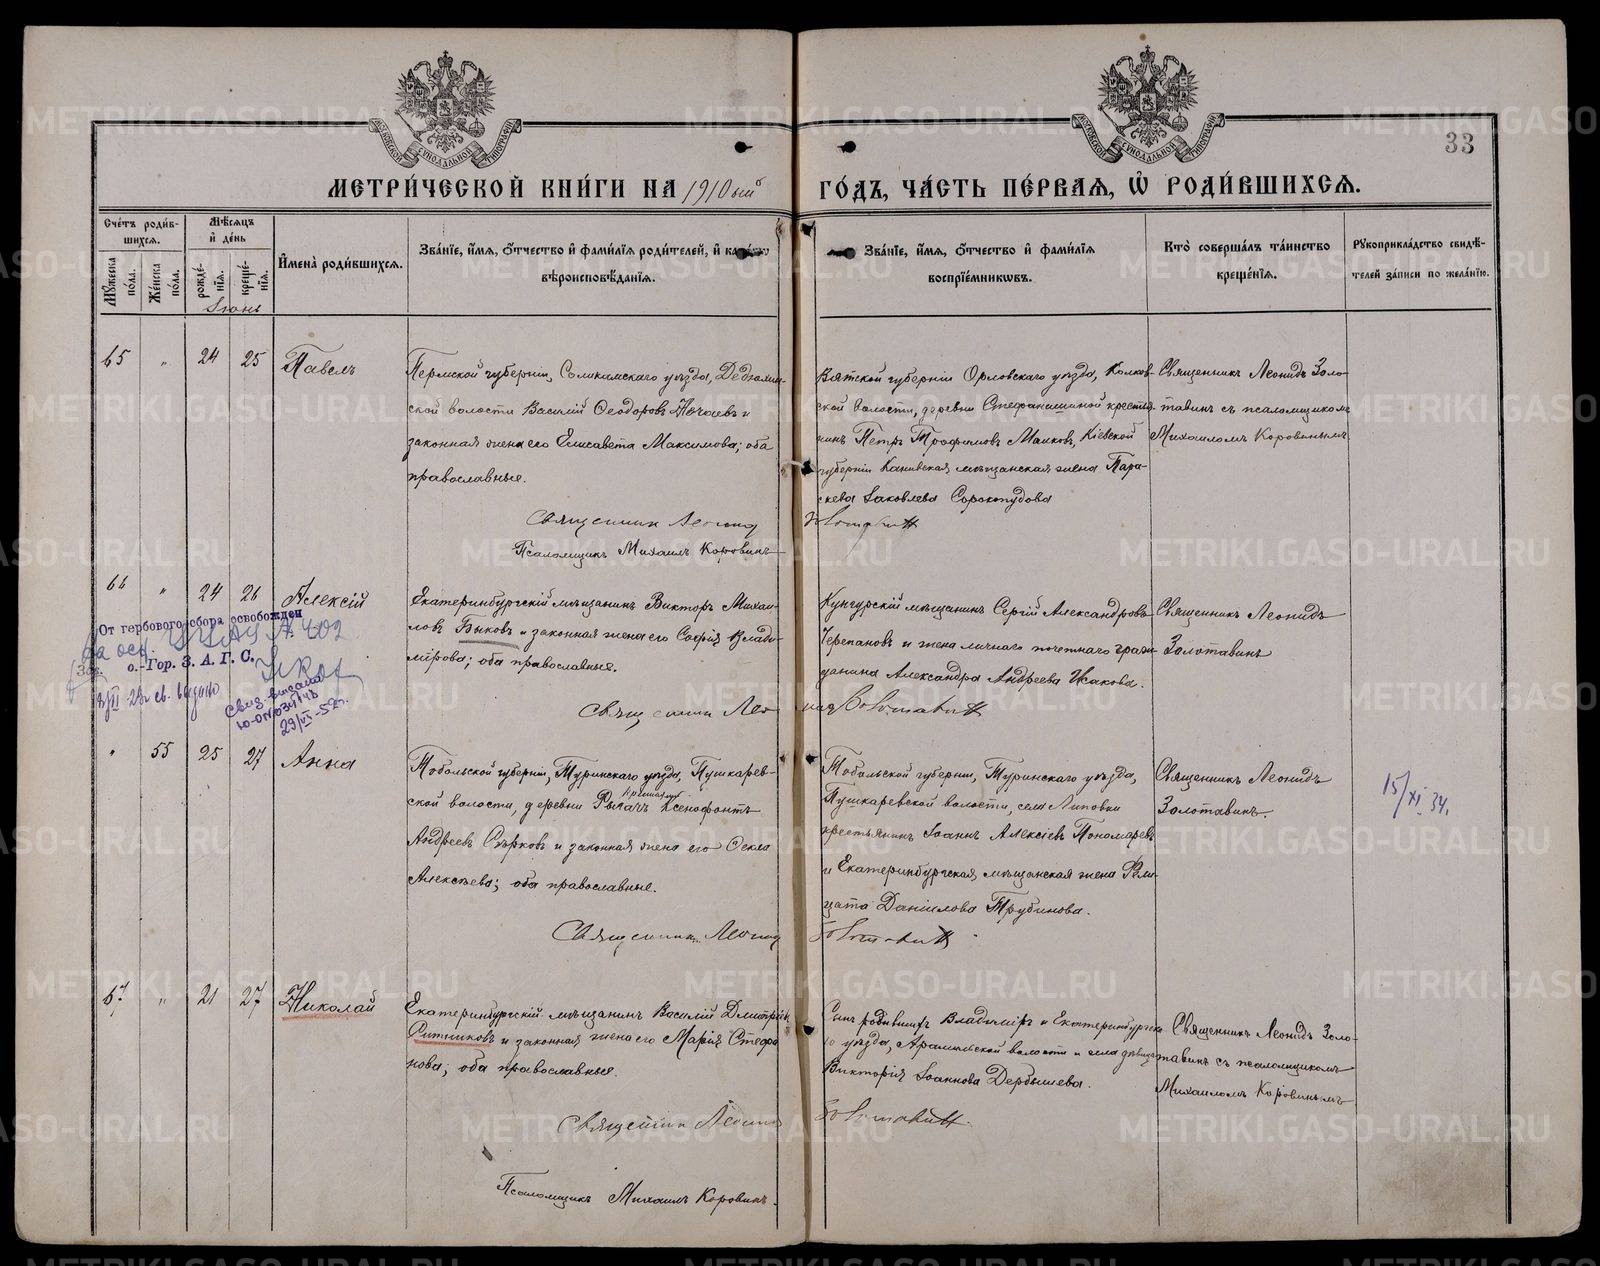 МОСКОВСКОЙ СѴНОДАЛЬНОЙ ТИПОГРАФІИ
МОСКОВСКОЙ СѴНОДАЛЬНОЙ ТИПОГРАФІИ
33
МЕТРИ́ЧЕСКОЙ КНИ́ГИ НА 1910ый
ГО́ДЪ, ЧА́СТЬ ПЕ́РВАЯ, Ѡ РОДИ́ВШИХСЯ.
Сче́тъ роди́в-
шихся.
Мѣ́сяцъ
и де́нь
Мꙋ́жеска по́ла.
Же́нска по́ла.
рожде́-
нїя.
креще́-
нїя.
И҆мена̀ роди́вшихся.
Зва́нїе, и҆́мя, ѻ҆́тчество и҆ фами́лїя роди́телей, и҆
вѣроисповѣ́данїя.
Зва́нїе, и҆́мя, ѻ҆́тчество и҆ фами́лїя
воспрїе́мниковъ.
Кто̀ соверша́лъ та́инство
креще́нїя.
Рꙋкоприкла́дство свидѣ́-
телей за́писи по жела́нїю.
Іюнь
65 " 24 25 Павелъ
Пермской губерніи, Соликамскаго уѣзда,
ской волости Василій Ѳеодоровъ Нечаевъ и
законная жена его Елисавета Максимова; оба
православные.
Священник Леонид Золотавин
Псаломщикъ Михаилъ Коровинъ
Вятской губерніи Орловскаго уѣзда,
ской волости, деревни крестья-
нинъ Петръ Трофимовъ Маиковъ, Кіевской
губерніи Каневская мѣщанская жена Пара-
скева Іаковлева
Священникъ Леонидъ Золо-
тавинъ съ псаломщикомъ
Михаиломъ Коровинымъ
66 " 24 26 Алексій
От гербового сбора освобожден
на осн.
о.-Гор. З. А. Г. С.
Екатеринбургскій мѣщанинъ Викторъ Михаи-
ловъ Быковъ и законная жена его Софія Влади-
мірова; оба православные.
Священник Леонид Золотавин
Кунгурскій мѣщанинъ Сергій Александровъ
Черепановъ и жена личнаго почетнаго граж-
данина Александра Андреева Исакова.
Священникъ Леонидъ
Золотавинъ
" 55 25 27 Анна
Тобольской губерніи, Туринскаго уѣзда, Пушкарев-
ской волости, деревни крестьянинъ Ксенофонтъ
Андреевъ Сѣрковъ и законная жена его Ѳекла
Алексѣева; оба православные.
Священник Леонид Золотавин
Тобольской губерніи, Туринскаго уѣзда,
Пушкаревской волости, села Липовки
крестьянинъ Іоаннъ Алексіевъ Пономаревъ
и Екатеринбургская мѣщанская жена Фели-
цата Даніилова Трубинова.
Священникъ Леонидъ
Золотавинъ.
15/XI 34.
67 " 21 27 Николай
Екатеринбургскій мѣщанинъ Василій Дмитріевъ
Ситниковъ и законная жена его Марія Стефа-
нова; оба православные.
Священник Леонид Золотавин
Псаломщикъ Михаилъ Коровинъ.
Сынъ родившихъ Владиміръ и Екатеринбургска-
го уѣзда, Арамильской волости и села дѣвица
Викторія Іоаннова Дербышева.
Священникъ Леонидъ Золо-
тавинъ съ псаломщикомъ
Михаиломъ Коровинымъ
METRIKI.GASO-URAL.RU